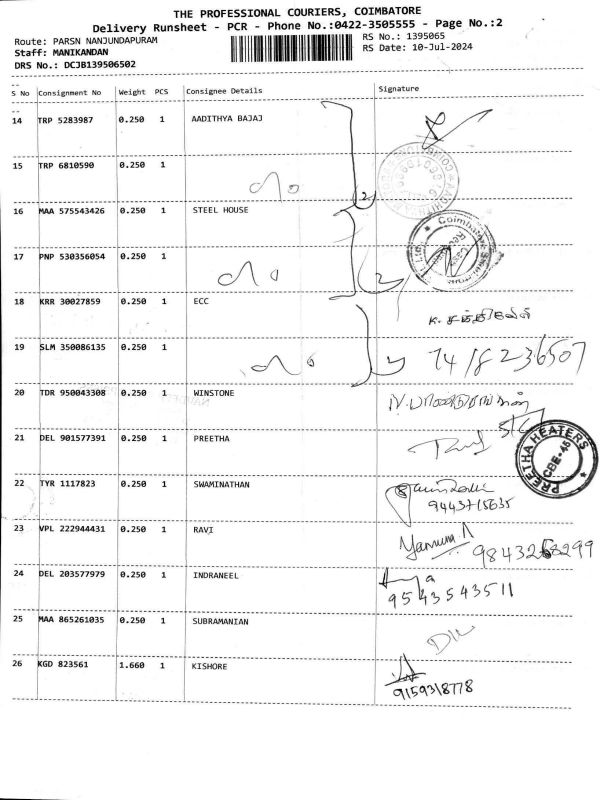 THE PROFESSIONAL COURIERS, COIMBATORE
Delivery Runsheet - PCR - Phone No.:0422-3505555 - Page No.:2
Route: PARSN NANJUNDAPURAM
RS No.: 1395065
Staff: MANIKANDAN
RS Date: 10-Jul-2024
DRS No.: DCJB139506502
S No Consignment No Weight PCS Consignee Details Signature
14 TRP 5283987 0.250 1 AADITHYA BAJAJ
15 TRP 6810590 0.250 1
2
16 MAA 575543426 0.250 1 STEEL HOUSE
17 PNP 530356054 0.250 1
2
18 KRR 30027859 0.250 1 ECC
19 SLM 350086135 0.250 1
20 TDR 950043308 0.250 1 WINSTONE
21 DEL 901577391 0.250 1 PREETHA
PREETHA HEATERS
CBE-45
22 TYR 1117823 0.250 1 SWAMINATHAN
9443715635
23 VPL 222944431 0.250 1 RAVI
24 DEL 203577979 0.250 1 INDRANEEL
9543543511
25 MAA 865261035 0.250 1 SUBRAMANIAN
26 KGD 823561 1.660 1 KISHORE
9159318778